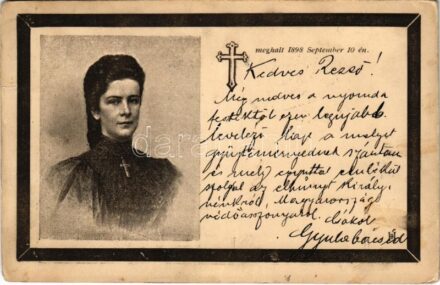 meghalt 1898 September 10 én.
Kedves Rezső!
Még nedves a nyomda
festéktől ezen legujabb
levelező lap a melyet
gyüjteményednek szántam
és mely egyúttal emlékül
szolgál az elhúnyt Király-
nénkről, Magyarország
védőasszonyáról. Csókol
Gyula bácsid